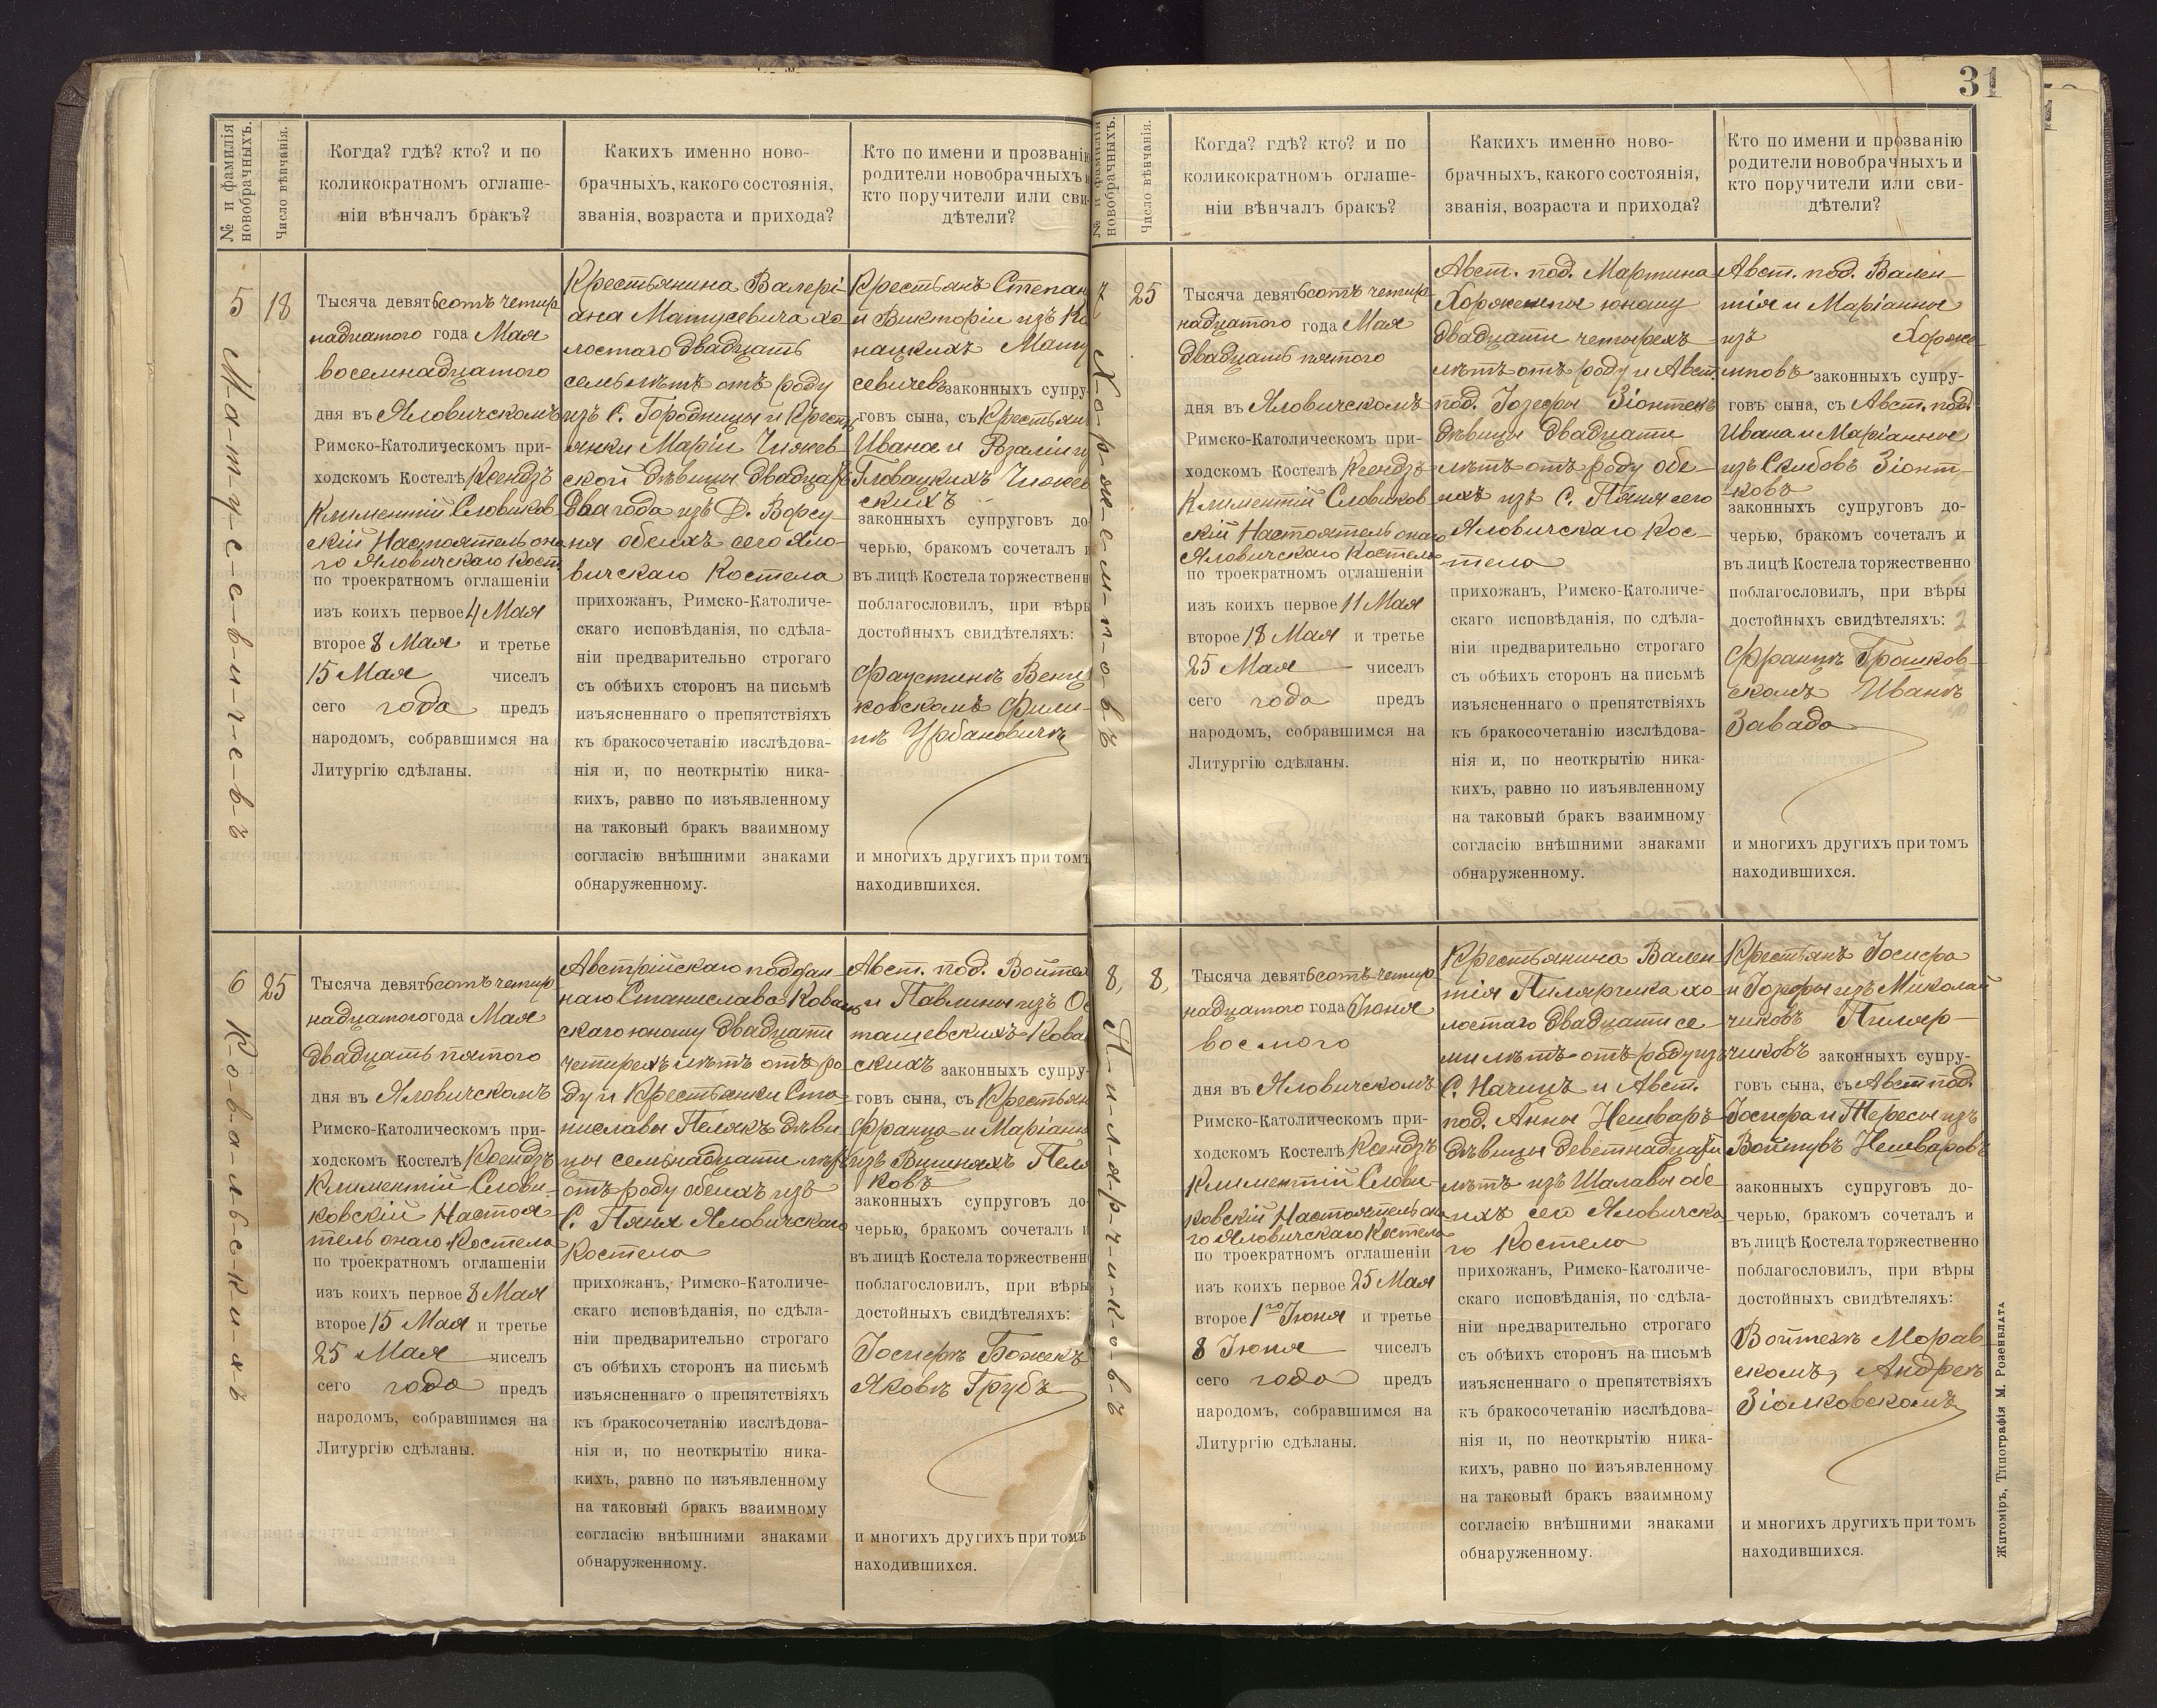 31
№ и фамилія новобрачныхъ.
Число вѣнчанія.
Когда? гдѣ? кто? и по
коликократномъ оглаше-
ніи вѣнчалъ бракъ?
Какихъ именно ново-
брачныхъ, какого состоянія,
званія, возраста и прихода?
Кто по имени и прозванію
родители новобрачныхъ и
кто поручители или сви-
дѣтели?
5
М-а-т-у-с-е-в-и-ч-е-в-ъ
18
Тысяча девятьсотъ четыр
надцатого года Мая
восемнадцатого
дня въ Яловичскомъ
Римско-Католическомъ при-
ходскомъ Костелѣ Ксендзъ
Климентій Словиков
скій Настоятель она
го Яловичскаго Кост
по троекратномъ оглашеніи
изъ коихъ первое 4 Мая
второе 8 Мая и третье
15 Мая чиселъ
сего года предъ
народомъ, собравшимся на
Литургію сдѣланы.
Крестьянина Валері-
ана Матусевича хо
лостаго двадцать
семь лѣтъ отъ роду
изъ С. Городницы и Кресть
янки Маріи Чижев
ской дѣвицы двадцать
два года изъ Д. Борсу-
ня обеихъ сего Яло-
вичскаго Костела
прихожанъ, Римско-Католиче-
скаго исповѣданія, по сдѣла-
ніи предварительно строгаго
съ обѣихъ сторонъ на письмѣ
изъясненнаго о препятствіяхъ
къ бракосочетанію изслѣдова-
нія и, по неоткрытію ника-
кихъ, равно по изъявленному
на таковый бракъ взаимному
согласію внѣшними знаками
обнаруженному.
Крестьянъ Степан
и Викторіи изъ Ко
нацкихъ Мату
севичевъ законныхъ супру-
говъ сына, съ Крестьян
Ивана и Розаліи и
Гловацкихъ Чижев
скихъ
законныхъ супруговъ до-
черью, бракомъ сочеталъ и
въ лицѣ Костела торжественн
поблагословилъ, при вѣры
достойныхъ свидѣтеляхъ:
Фаустинъ Венц
ковскомъ Фили-
пъ Урбановичъ
и многихъ другихъ при томъ
находившихся.
6
К-о-в-а-л-ь-с-к-и-х-ъ
25
Тысяча девятьсотъ четыр
надцатого года Мая
двадцать пятого
дня въ Яловичскомъ
Римско-Католическомъ при-
ходскомъ Костелѣ Ксендзъ
Климентій Слови-
ковскій Настоя
тель онаго Костела
по троекратномъ оглашеніи
изъ коихъ первое 8 Мая
второе 15 Мая и третье
25 Мая чиселъ
сего года предъ
народомъ, собравшимся на
Литургію сдѣланы.
Австрійскаго поддан-
наго Станислава Коваль
скаго юношу двадцати
четырехъ лѣтъ отъ ро-
ду и Крестьянки Ста-
ниславы Пелякъ дѣви
цы семьнадцати лѣтъ
отъ роду обеихъ изъ
С. Пяня Яловичскаго
Костела
прихожанъ, Римско-Католиче-
скаго исповѣданія, по сдѣла-
ніи предварительно строгаго
съ обѣихъ сторонъ на письмѣ
изъясненнаго о препятствіяхъ
къ бракосочетанію изслѣдова-
нія и, по неоткрытію ника-
кихъ, равно по изъявленному
на таковый бракъ взаимному
согласію внѣшними знаками
обнаруженному.
Авст. под. Войтех
и Павлины изъ Ос
ташевскихъ Кова
скихъ законныхъ супру-
говъ сына, съ Крестьян
Франца и Маріан
изъ Вишневъ Пеля
ковъ
законныхъ супруговъ до-
черью, бракомъ сочеталъ и
въ лицѣ Костела торжественн
поблагословилъ, при вѣры
достойныхъ свидѣтеляхъ:
Іосифъ Божекъ
Яковъ Грубъ
и многихъ другихъ при томъ
находившихся.
№ и фамилія новобрачныхъ.
Число вѣнчанія.
Когда? гдѣ? кто? и по
коликократномъ оглаше-
ніи вѣнчалъ бракъ?
Какихъ именно ново-
брачныхъ, какого состоянія,
званія, возраста и прихода?
Кто по имени и прозванію
родители новобрачныхъ и
кто поручители или сви-
дѣтели?
7,
Х-о-р-ж-е-м-п-о-в-ъ
25
Тысяча девятьсотъ четыр
надцатого года Мая
двадцать пятого
дня въ Яловичскомъ
Римско-Католическомъ при-
ходскомъ Костелѣ Ксендзъ
Климентій Словиков
скій Настоятель онаго
Яловичскаго Костела
по троекратномъ оглашеніи
изъ коихъ первое 11 Мая
второе 18 Мая и третье
25 Мая чиселъ
сего года предъ
народомъ, собравшимся на
Литургію сдѣланы.
Авст. под. Мартина
Хоржемпы юношу
двадцати четырехъ
лѣтъ отъ роду и Авст.
под. Іозефы Зіонтекъ
дѣвицы двадцати
лѣтъ отъ роду обе-
ихъ изъ С. Пяня сего
Яловичскаго Кос-
тела
прихожанъ, Римско-Католиче-
скаго исповѣданія, по сдѣла-
ніи предварительно строгаго
съ обѣихъ сторонъ на письмѣ
изъясненнаго о препятствіяхъ
къ бракосочетанію изслѣдова-
нія и, по неоткрытію ника-
кихъ, равно по изъявленному
на таковый бракъ взаимному
согласію внѣшними знаками
обнаруженному.
Авст. под. Вален-
тія и Маріанны
изъ Хорже-
мповъ законныхъ супру-
говъ сына, съ Авст. под.
Ивана и Маріанны
изъ Скибовъ Зіонт-
ковъ
законныхъ супруговъ до-
черью, бракомъ сочеталъ и
въ лицѣ Костела торжественно
поблагословилъ, при вѣры
достойныхъ свидѣтеляхъ:
Францъ Грошков-
скомъ Иванъ
Завада
и многихъ другихъ при томъ
находившихся.
8,
П-и-л-я-р-ч-и-к-о-в-ъ
8,
Тысяча девятьсотъ четыр
надцатого года Іюня
восмого
дня въ Яловичскомъ
Римско-Католическомъ при-
ходскомъ Костелѣ Ксендзъ
Климентій Слови-
ковскій Настоятель она
го Яловичскаго Костела
по троекратномъ оглашеніи
изъ коихъ первое 25 Мая
второе 1го Іюня и третье
8 Іюня чиселъ
сего года предъ
народомъ, собравшимся на
Литургію сдѣланы.
Крестьянина Вален
тія Пилярчика хо
лостаго двадцати се
ми лѣтъ отъ роду изъ
С. Начицъ и Авст.
под. Анны Нешваръ
дѣвицы деветнадцати
лѣтъ изъ Шалавы обе
ихъ сего Яловичска
го Костела
прихожанъ, Римско-Католиче-
скаго исповѣданія, по сдѣла-
ніи предварительно строгаго
съ обѣихъ сторонъ на письмѣ
изъясненнаго о препятствіяхъ
къ бракосочетанію изслѣдова-
нія и, по неоткрытію ника-
кихъ, равно по изъявленному
на таковый бракъ взаимному
согласію внѣшними знаками
обнаруженному.
Крестьянъ Іосифа
и Іозефы изъ Миколай
чиковъ Пиляр-
чиковъ законныхъ супру-
говъ сына, съ Авст. под.
Іосифа и Тересы изъ
Войтувъ Нешваровъ
законныхъ супруговъ до-
черью, бракомъ сочеталъ и
въ лицѣ Костела торжественно
поблагословилъ, при вѣры
достойныхъ свидѣтеляхъ:
Войтехъ Морав
скомъ, Андрей
Зіолковскомъ
и многихъ другихъ при томъ
находившихся.
Житоміръ, Типографія М. Розенблата